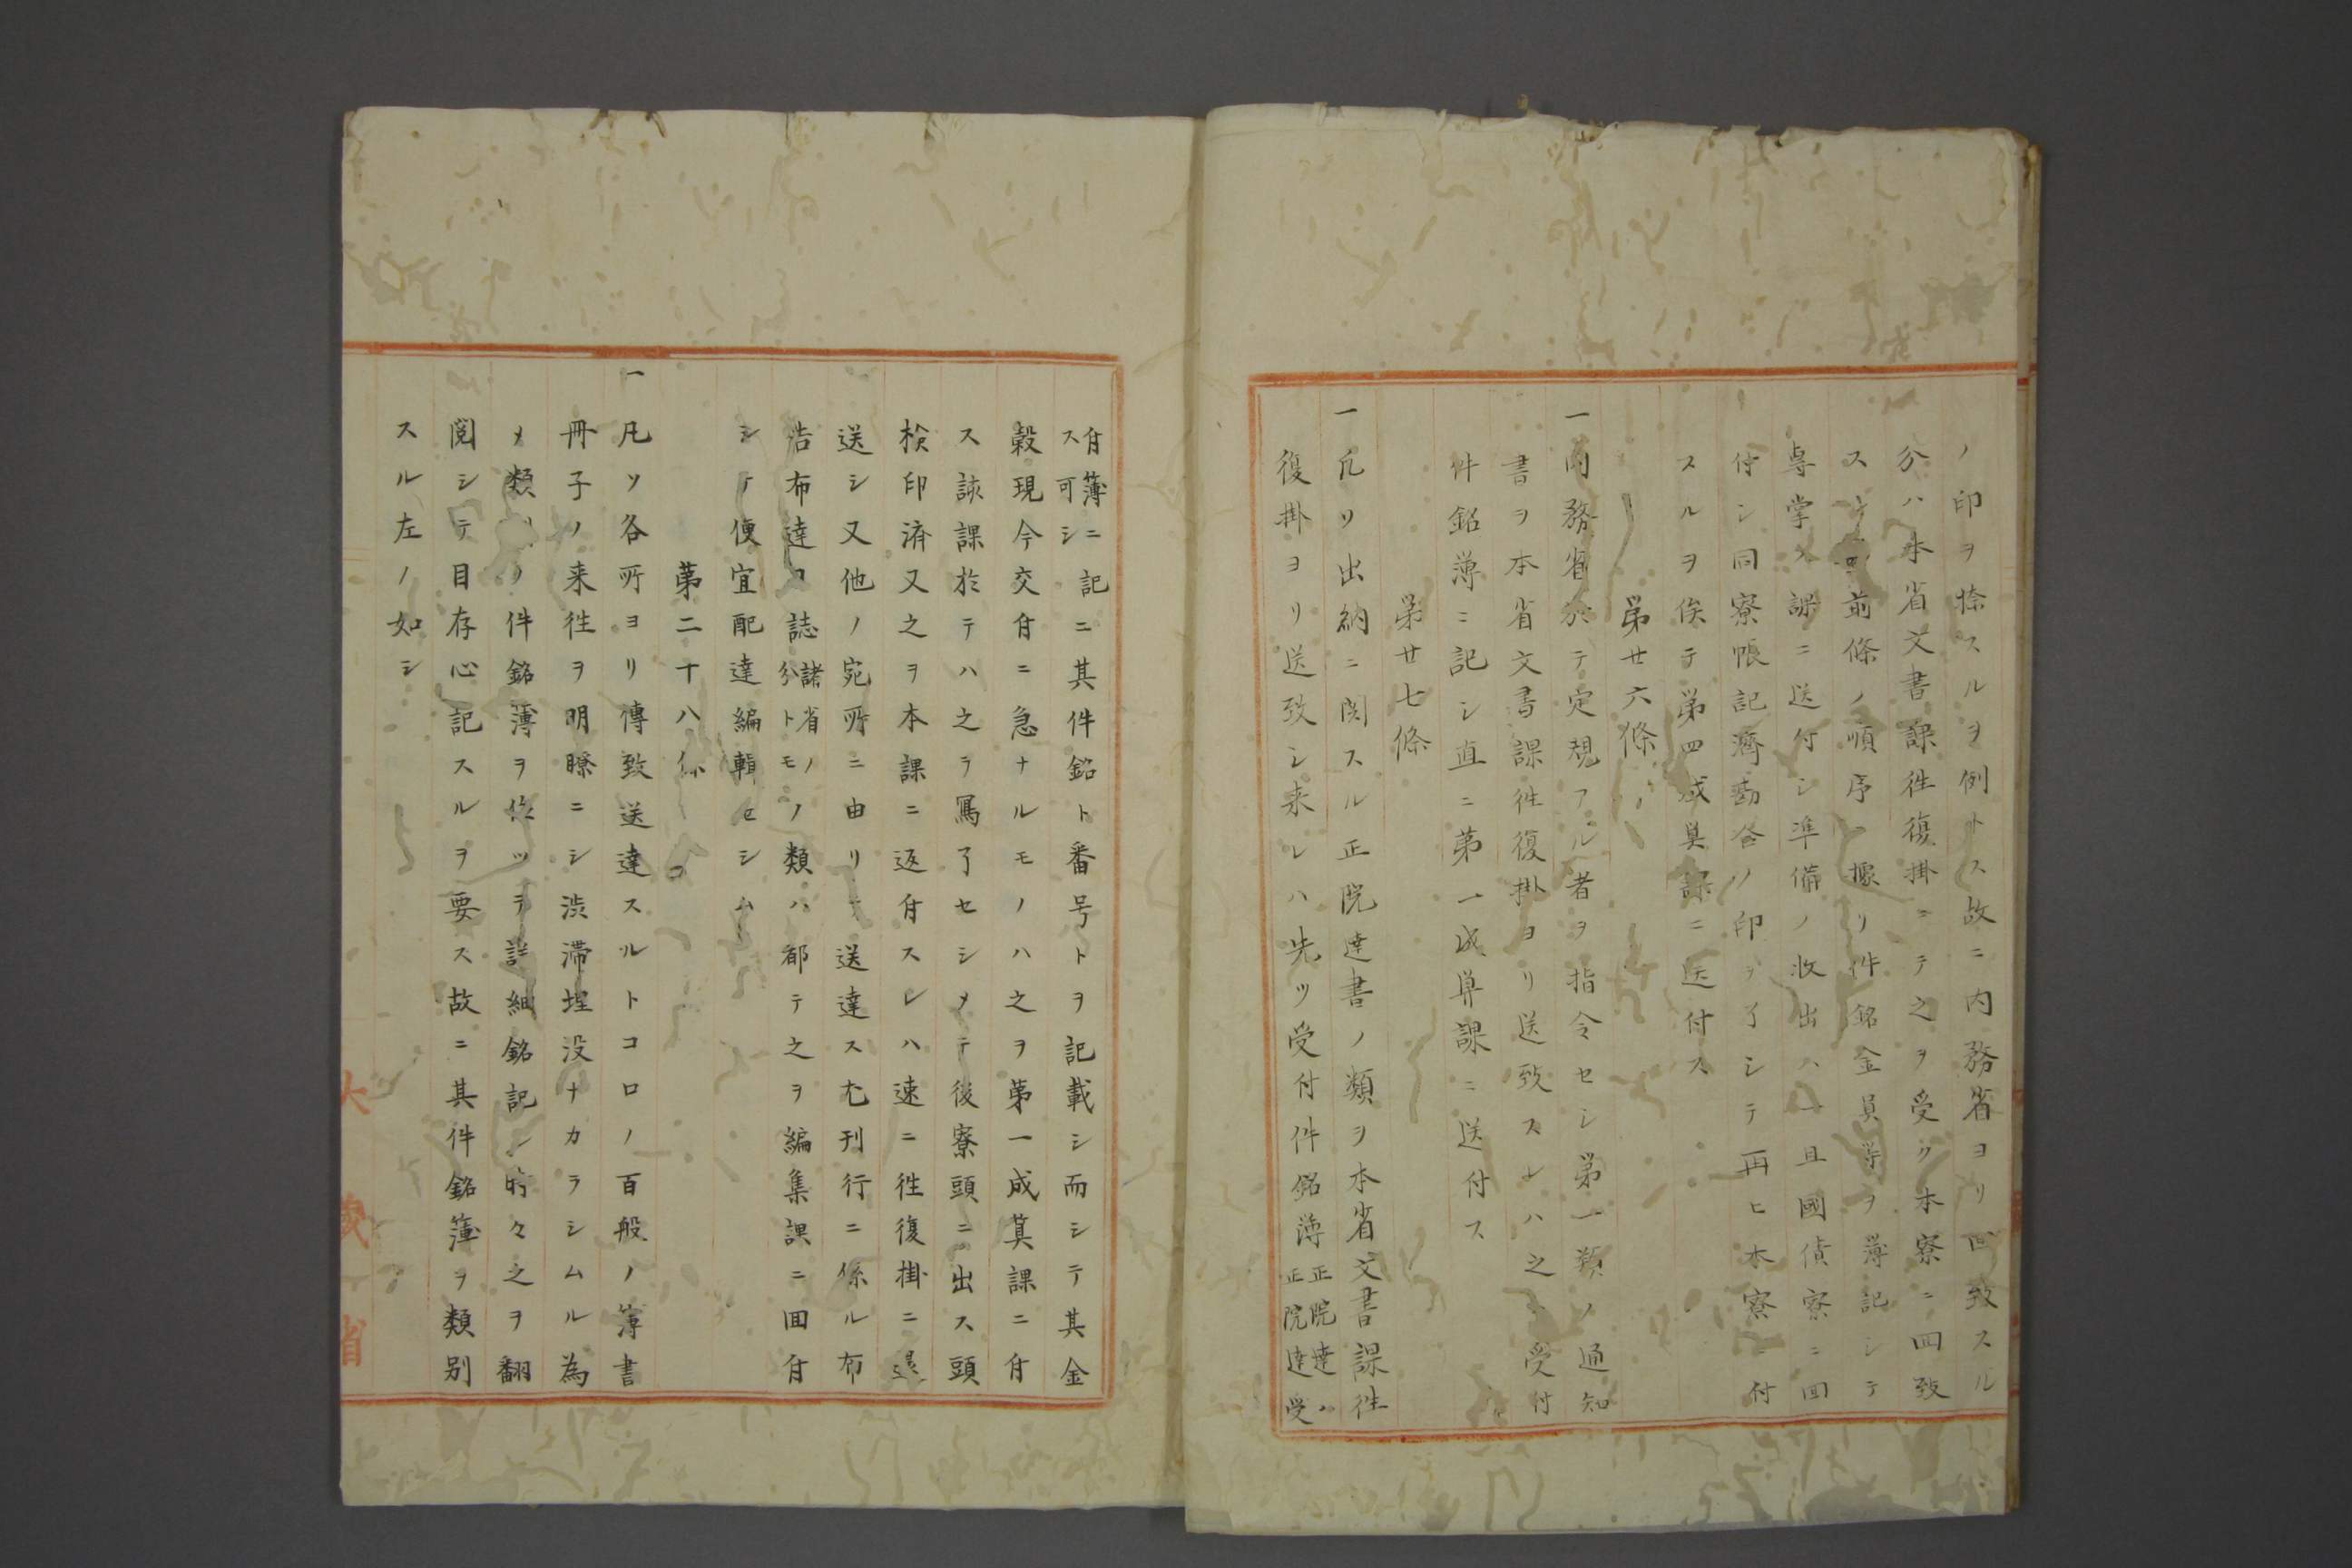 ノ印ヲ捺スルヲ例トス故ニ内務省ヨリ回致スル
分ハ本省文書課徃復掛ニテ之ヲ受ケ本寮ニ回致
ス 前條ノ順序ニ據リ件銘金員等ヲ簿記シテ
専掌ノ課ニ送付シ準備ノ收出ハ一且國債寮ニ回
付シ同寮帳記濟勘合ノ印ヲ了シテ再ヒ本寮ニ付
スルヲ俟テ第四成算課ニ送付ス
第廿六條
一内務省於テ定規アル者ヲ指令セシ第一類ノ通知
書ヲ本省文書課徃復掛ヨリ送致スレハ之ヽ受付
件銘薄ニ記シ直ニ第一成算課ニ送付ス
第廿七條
一凡ソ出納ニ関スル正院達書ノ類ヲ本省文書課徃
復掛ヨリ送致シ来レハ先ツ受付件銘薄正院達ノ正院達受
付簿ニ記ス可シニ其件銘ト番号トヲ記載シ而シテ其金
穀現今交付ニ急ナルモノハ之ヲ第一成算課ニ付
ス該課於テハ之ヲ寫了セシメテ後寮頭ニ出ス頭
検印済又之ヲ本課ニ返付スレハ速ニ徃復掛ニ還
送シ又他ノ宛所ニ由リテ送達ス尤刊行ニ係ル布
告布達日誌諸省ノ分トモノ類ハ都テ之ヲ編集課ニ回付
シテ便宜配達編輯セシム
第二十八條
一凡ソ各所ヨリ傳致送達スルトコロノ百般ノ簿書
冊子ノ来徃ヲ明瞭ニシ渋滞埋没ナカラシムル為
メ類 ノ件銘薄ヲ作ツテ詳細銘記シ時々之ヲ翻
閲シテ目存心記スルヲ要ス故ニ其件銘簿ヲ類別
スル左ノ如シ
大蔵省